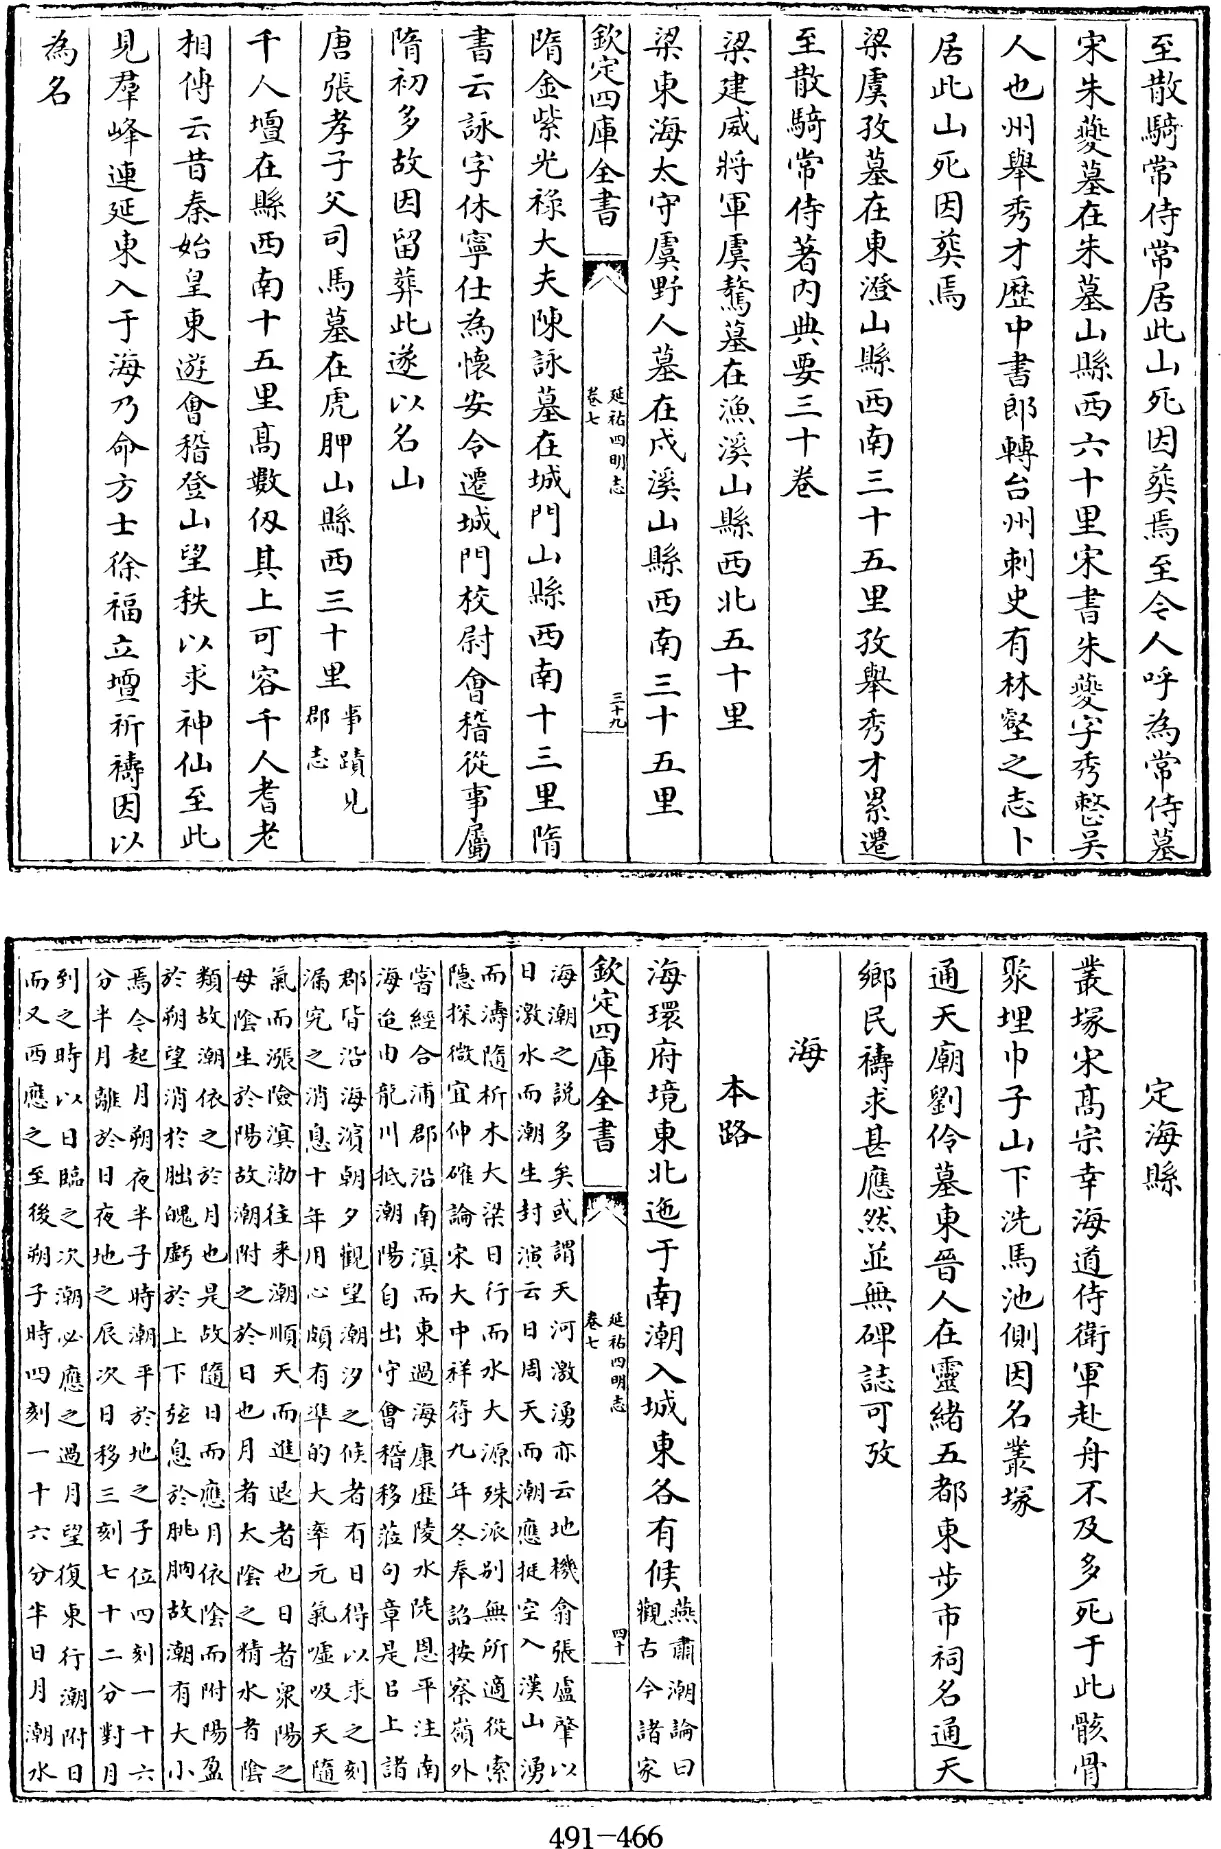 至散騎常侍常居此山死因葬焉至今人呼為常侍墓
宋朱㚇墓在朱墓山縣西六十里宋書朱㚇字秀慗吳
人也州舉秀才歷中書郎轉台州刺史有林壑之志卜
居此山死因葬焉
梁虞孜墓在東澄山縣西南三十五里孜舉秀才累遷
至散騎常侍著內典要三十卷
梁建威將軍虞騖墓在漁溪山縣西北五十里
梁東海太守虞野人墓在戍溪山縣西南三十五里
欽定四庫全書
延祐四明志
卷七
三十九
隋金紫光祿大夫陳詠墓在城門山縣西南十三里隋
書云詠字休寧仕為懷安令遷城門校尉會稽從事屬
隋初多故因留葬此遂以名山
唐張孝子父司馬墓在虎胛山縣西三十里
事蹟見
郡志
千人壇在縣西南十五里高數仭其上可容千人耆老
相傳云昔秦始皇東遊會稽登山望秩以求神仙至此
見羣峰連延東入于海乃命方士徐福立壇祈禱因以
為名
定海縣
叢塚宋高宗幸海道侍衛軍赴舟不及多死于此骸骨
聚埋巾子山下洗馬池側因名叢塚
通天廟劉伶墓東晉人在靈緒五都東步市祠名通天
鄉民禱求甚應然並無碑誌可攷
海
本路
海環府境東北迤于南潮入城東各有候
燕肅潮論曰
觀古今諸家
欽定四庫全書
延祐四明志
卷七
四十
海潮之說多矣或謂天河激湧亦云地機翕張盧肇以
日激水而潮生封演云日周天而潮應挺空入漢山湧
而濤隨析木大梁日行而水大源殊派別無所適從索
隱探微宜伸確論宋大中祥符九年冬奉詔按察嶺外
嘗經合浦郡沿南溟而東過海康歷陵水陟恩平注南
海迨由龍川抵潮陽自出守會稽移蒞句章是㠯上諸
郡皆沿海濱朝夕觀望潮汐之候者有日得以求之刻
漏究之消息十年用心頗有準的大率元氣噓吸天隨
氣而漲險溟渤往来潮順天而進退者也日者衆陽之
母陰生於陽故潮附之於日也月者太陰之精水者陰
類故潮依之於月也是故隨日而應月依陰而附陽盈
於朔望消於朏魄虧於上下弦息於朓朒故潮有大小
焉今起月朔夜半子時潮平於地之子位四刻一十六
分半月離於日夜地之辰次日移三刻七十二分對月
到之時以日臨之次潮必應之過月望復東行潮附日
而又西應之至後朔子時四刻一十六分半日月潮水
491-466